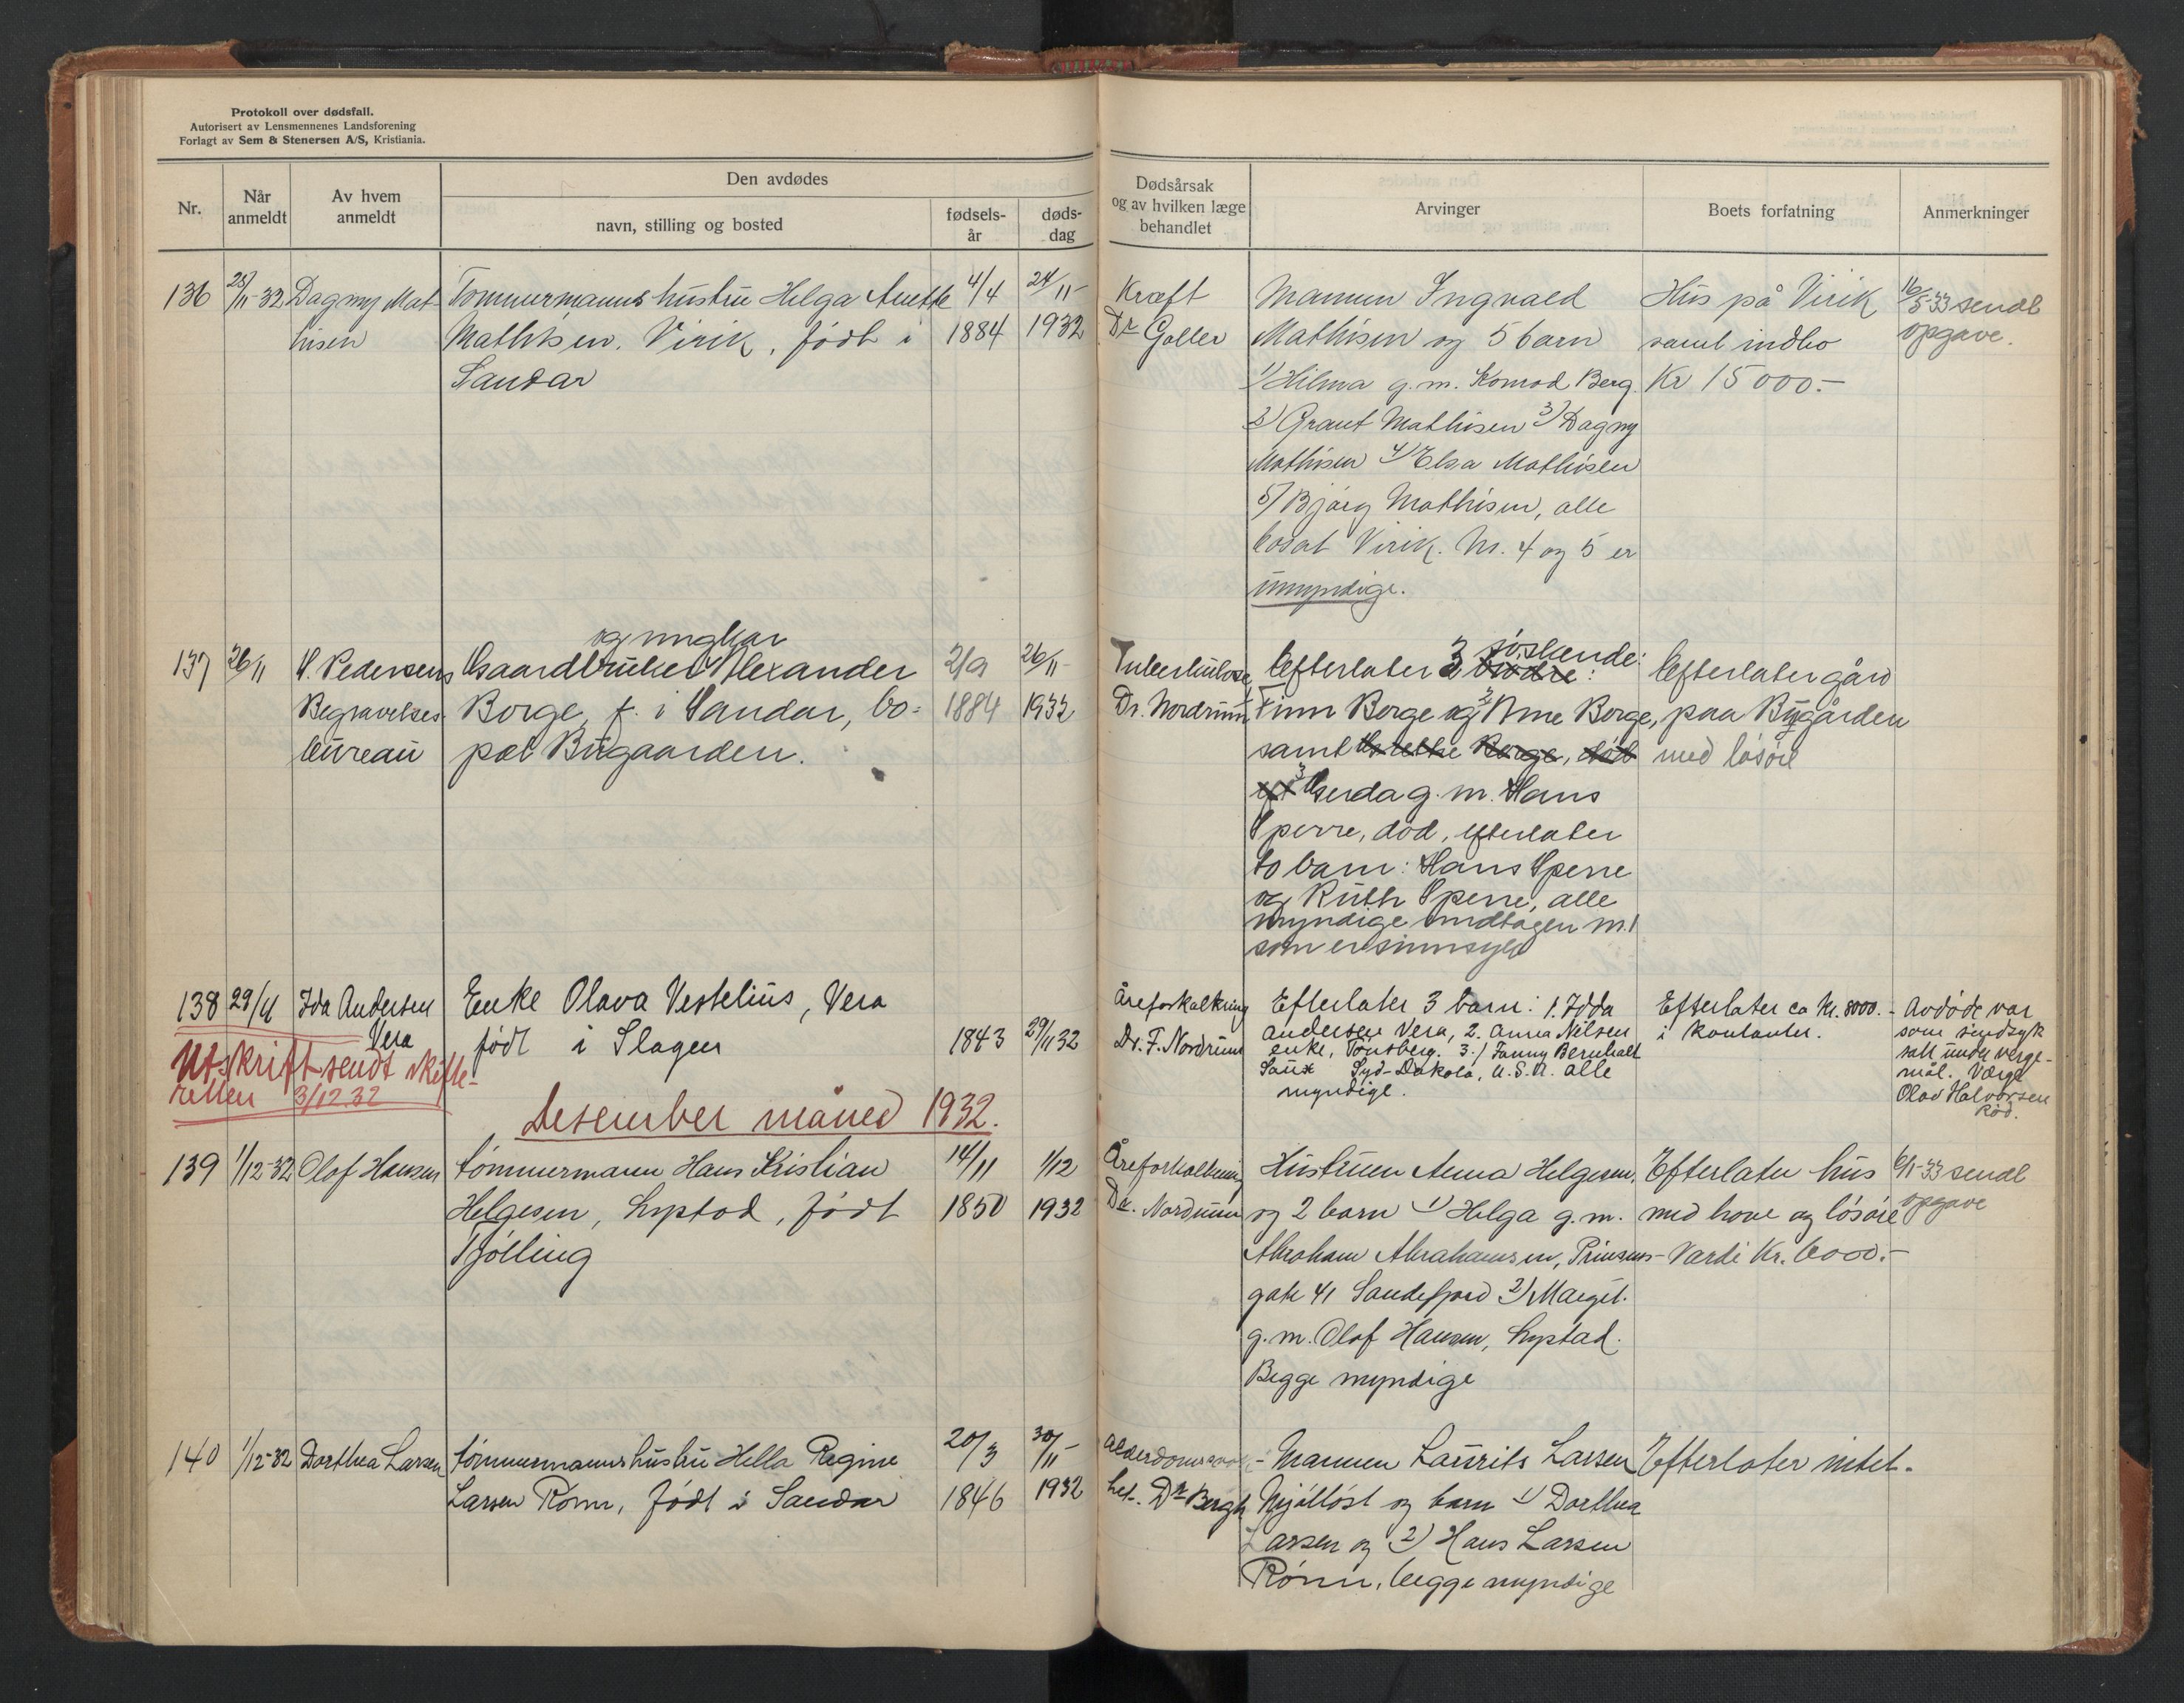 Protokoll over dødsfall.
Autorisert av Lensmennenes Landsforening
Forlagt av Sem & Stenersen A/S, Kristiania.
Nr.
Når anmeldt
Av hvem anmeldt
Den avdødes
navn, stilling og bosted
fødselsår
dødsdag
Dødsårsak og av hvilken læge behandlet
Arvinger
Boets forfatning
Anmerkninger
136
25/11-32
Dagny Mat
hisen
Tømmermanns hustru Helga Anette
Mathisen. Virik, født i
Sandar
4/4
1884
24/11
1932
Kræft
Dr Galler
Mannen Ingvald
Mathisen og 5 barn
1) Hilma g.m. Konrad Berg.
2) Graut Mathisen 3) Dagny
Mathisen 4) Elsa Mathisen
5) Bjørg Mathisen, alle
bosat Virik. Nr. 4 og 5 er
umyndige.
Hus på Virik
samt indbo
Kr 15000.-
16/5-33 sendt
opgave.
137
26/11
V. Pedersens
Begravelses
bureau
og ungkar
Gaardbruker Alexander
Borge, f. i Sandar, bo-
pæl Bugaarden.
2/9
1884
26/11
1932
Tuberkulose
Dr. Nordrum
søskende:
Efterlater 3 brødre:
Finn Borge og 2) Arne Borge,
samt Grethe Borge, død
3 Gerda g.m. Hans
Sperre, død, efterlater
to barn: Hans Sperre
og Ruth Sperre, alle
myndige undtagen nr. 1
som er sinnsyg
Efterlater gård
paa Bugården
med løsøre
138
29/11
Ida Andersen
Vera
Enke Olava Vestelius, Vera
født i Slagen
1843
29/11 32
Åreforkalkning
Dr. F. Nordrum
Efterlater 3 barn: 1. Idda
Andersen Vera, 2. Anna Nilsen
enke, Tønsberg. 3.) Fanny Bernhalt
Syd-Dakota, U.S.A. alle
myndige.
Efterlater ca Kr. 8000.-
i kontanter.
Avdøde var
som sindsyk
satt under verge-
mål. Værge
Olav Halvorsen
Rød.
Utskrift sendt skifte-
retten 3/12.32
Desember måned 1932.
139
1/12-32
Olof Hansen
Tømmermann Hans Kristian
Helgesen, Lystad, født
Tjølling
14/11
1850
1/12
1932
Åreforkalkning
Dr. Nordrum
Hustruen Anna Helgesen,
og 2 barn 1) Helga g.m.
Abraham Abrahamsen, Prinsens-
gate 41 Sandefjord 2) Margit.
g.m. Olof Hansen, Lystad.
Begge myndige
Efterlater hus
med have og løsøre
Verdi Kr. 6000.-
6/1-33 sendt
opgave
140
1/12-32
Dorthea Larsen
Tømmermanns hustru Hella Regine
Larsen Rønn, født i Sandar
20/3
1846
30/11
1932
het. Dr Bergh
Mannen Laurits Larsen
Mjølløst og barn 1) Dorthea
Larsen og 2) Hans Larsen
Rønn, begge myndige
Efterlater intet.